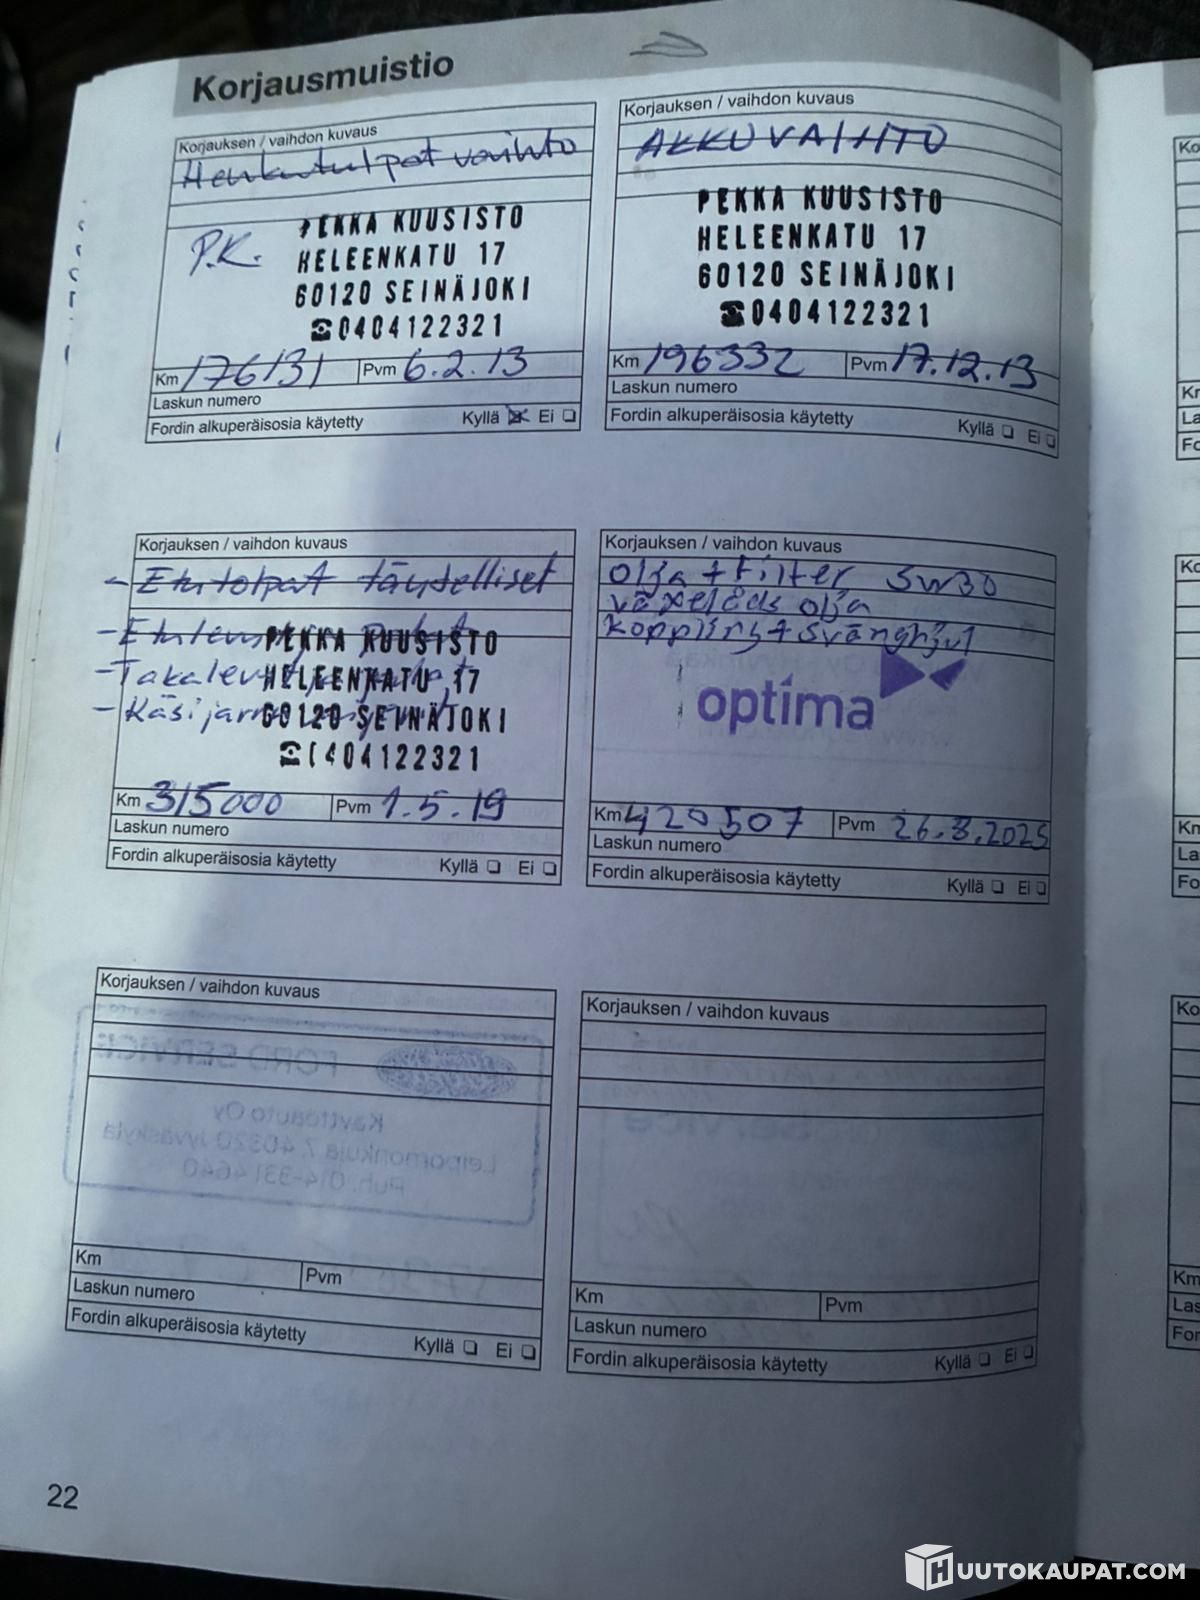 Korjausmuistio
Korjauksen / vaihdon kuvaus
Hehkutulpat vaihto
P.K.
PEKKA KUUSISTO
HELEENKATU 17
60120 SEINÄJOKI
☎0404122321
Km 176131 Pvm 6.2.13
Laskun numero
Fordin alkuperäisosia käytetty Kyllä ☒ Ei ❑
Korjauksen / vaihdon kuvaus
AKKUVAIHTO
PEKKA KUUSISTO
HELEENKATU 17
60120 SEINÄJOKI
☎0404122321
Km 196332 Pvm 17.12.13
Laskun numero
Fordin alkuperäisosia käytetty Kyllä ❑ Ei ❑
Korjauksen / vaihdon kuvaus
- Etutolpat täydelliset
PEKKA KUUSISTO
- Takalevyt
HELEENKATU 17
- Käsijarru
60120 SEINÄJOKI
☎0404122321
Km 315000 Pvm 1.5.19
Laskun numero
Fordin alkuperäisosia käytetty Kyllä ❑ Ei ❑
Korjauksen / vaihdon kuvaus
olja + Filter 5w30
växelåds olja
koppling + svänghjul
optima
Km 420507 Pvm 26.8.2025
Laskun numero
Fordin alkuperäisosia käytetty Kyllä ❑ Ei ❑
Korjauksen / vaihdon kuvaus
FORD SERVICE
Käyttöauto Oy
Leipomonkuja 7, 40320 Jyväskylä
Puh. 014-3314640
Km Pvm
Laskun numero
Fordin alkuperäisosia käytetty Kyllä ❑ Ei ❑
Korjauksen / vaihdon kuvaus
Km Pvm
Laskun numero
Fordin alkuperäisosia käytetty Kyllä ❑ Ei ❑
22
HUUTOKAUPAT.COM